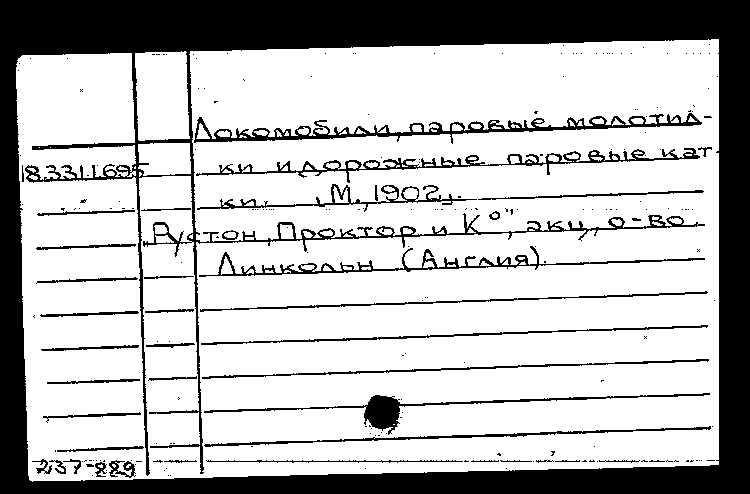 Локомобили, паровые молотил-
18.331.1.695 ки и дорожные паровые кат-
ки. М., 1902 г.
„Рустон, Проктор и К°", акц. о-во.
Линкольн (Англия).
237-229